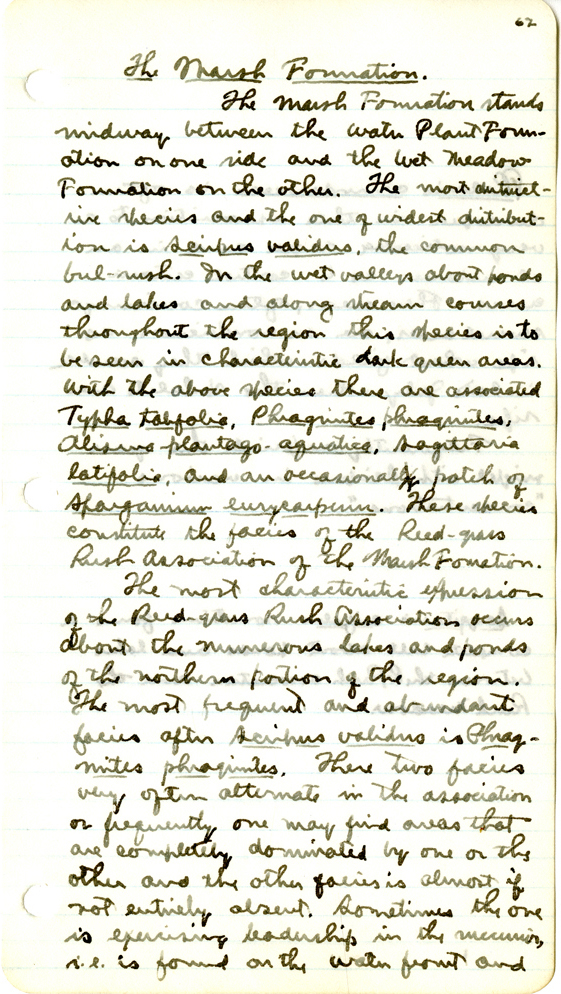 62
The Marsh Formation.
The Marsh Formation stands
midway between the Water Plant Form-
ation on one side and the Wet Meadow
Formation on the other. The most distinct-
ive species and the one of widest distribut-
ion is Scirpus validus, the common
bul-rush. In the wet valleys about ponds
and lakes and along stream courses
throughout the region this species is to
be seen in characteristic dark green areas.
With the above species there are associated
Typha latifolia, Phragmites phragmites,
Alisma plantago-aquatica, Sagittaria
latifolia, and an occasional patch of
Sparganium eurycarpum. These species
constitute the facies of the Reed-grass
Rush Association of the Marsh Fomation.
The most characteristic expression
of the Reed-grass Rush Association occurs
about the numerous lakes and ponds
of the northern portion of the region.
The most frequent and abundant
facies after Scirpus validus is Phrag-
mites phragmites. These two facies
very often alternate in the association
or frequently one may find areas that
are completely dominated by one or the
other and the other facies is almost if
not entirely absent. Sometimes the one
is exercising leadership in the
i.e. is found on the water front and